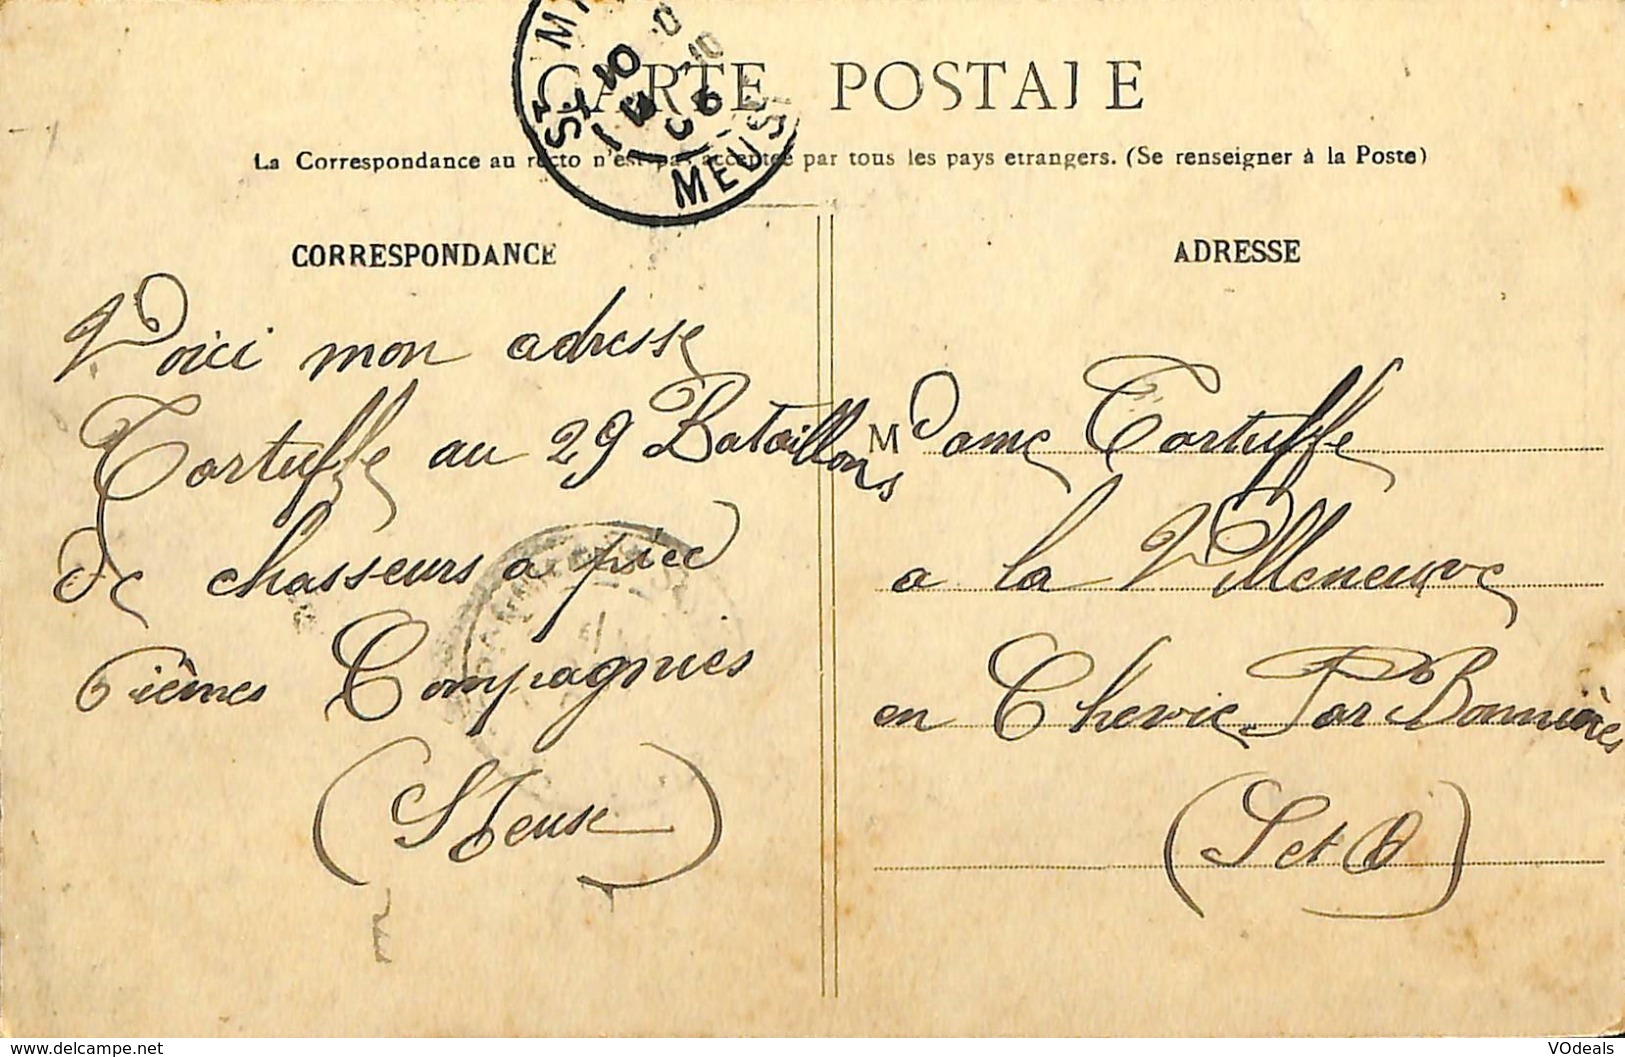 CARTE POSTALE
La Correspondance au recto n'est pas acceptée par tous les pays etrangers. (Se renseigner à la Poste)
ST MI
10
06
MEUSE
CORRESPONDANCE
Voici mon adresse
Tartuffe au 29 Bataillons
de chasseurs a piee
6ièmes Compagnies
(Meuse)
ADRESSE
Mdame Tartuffe
a la Villeneuve
en Chevie Par Bonnières
(S et O)
www.delcampe.net
VOdeals